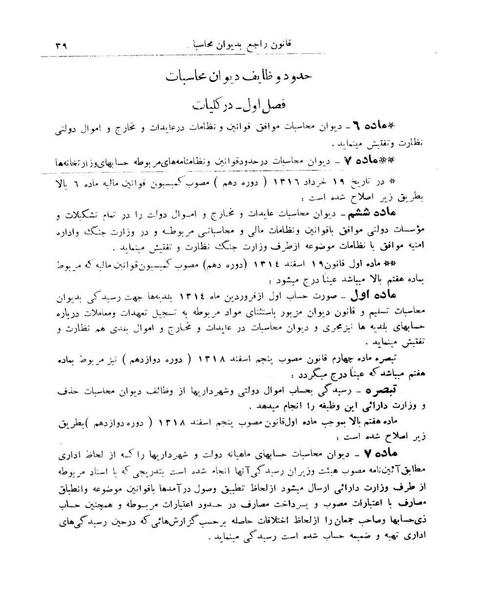 قانون راجع بدیوان محاسبات ۳۹
حدود وظایف دیوان محاسبات
فصل اول ـ در کلیات
*ماده ۶ ـ دیوان محاسبات موافق قوانین و نظامات در عایدات و مخارج و اموال دولتی
نظارت و تفتیش مینماید.
**ماده ۷ ـ دیوان محاسبات در حدود قوانین و نظامنامه‌های مربوطه حسابهای وزارتخانه‌ها
* در تاریخ ۱۹ خرداد ۱۳۱۶ ( دوره دهم ) مصوب کمیسیون قوانین مالیه ماده ۶ بالا
بطریق زیر اصلاح شده است :
ماده ششم ـ دیوان محاسبات عایدات و مخارج و اموال دولت را در تمام تشکیلات و
مؤسسات دولتی موافق باقوانین ونظامات مالی و محاسباتی مربوطه و در وزارت جنگ واداره
امنیه موافق با نظامات موضوعه ازطرف وزارت جنگ نظارت و تفتیش مینماید .
** ماده اول قانون ۱۹ اسفند ۱۳۱۴ (دوره دهم) مصوب کمیسیون قوانین مالیه که مربوط
بماده هفتم بالا میباشد عیناً درج میشود :
ماده اول ـ صورت حساب اول از فروردین ماه ۱۳۱۴ بلدیه‌ها جهت رسیدگی بدیوان
محاسبات تسلیم و قانون دیوان مزبور باستثنای مواد مربوطه به تسجیل تعهدات ومعاملات درباره
حسابهای بلدیه ها نیزمجری و دیوان محاسبات در عایدات و مخارج و اموال بلدی هم نظارت و
تفتیش مینماید .
تبصره ماده چهارم قانون مصوب پنجم اسفند ۱۳۱۸ ( دوره دوازدهم ) نیز مربوط بماده
هفتم میباشد که عیناً درج میگردد :
تبصره ـ رسیدگی بحساب اموال دولتی وشهرداریها از وظائف دیوان محاسبات حذف
و وزارت دارائی این وظیفه را انجام میدهد .
ماده هفتم بالا بموجب ماده اول قانون مصوب پنجم اسفند ۱۳۱۸ ( دوره دوازدهم ) بطریق
زیر اصلاح شده است :
ماده ۷ ـ دیوان محاسبات حسابهای ماهیانه دولت و شهرداریها را که از لحاظ اداری
مطابق آئین‌نامه مصوب هیئت وزیران رسیدگی آنها انجام شده است بتدریجی که با اسناد مربوطه
از طرف وزارت دارائی ارسال میشود ازلحاظ تطبیق وصول درآمدها باقوانین موضوعه وانطباق
مصارف با اعتبارات مصوب و پرداخت مصارف در حدود اعتبارات مربوطه و همچنین حساب
ذی‌حسابها وصاحب جمعان را ازلحاظ اختلافات حاصله برحسب گزارش‌هائی که درحین رسیدگی‌های
اداری تهیه و ضمیمه حساب شده است رسیدگی مینماید .